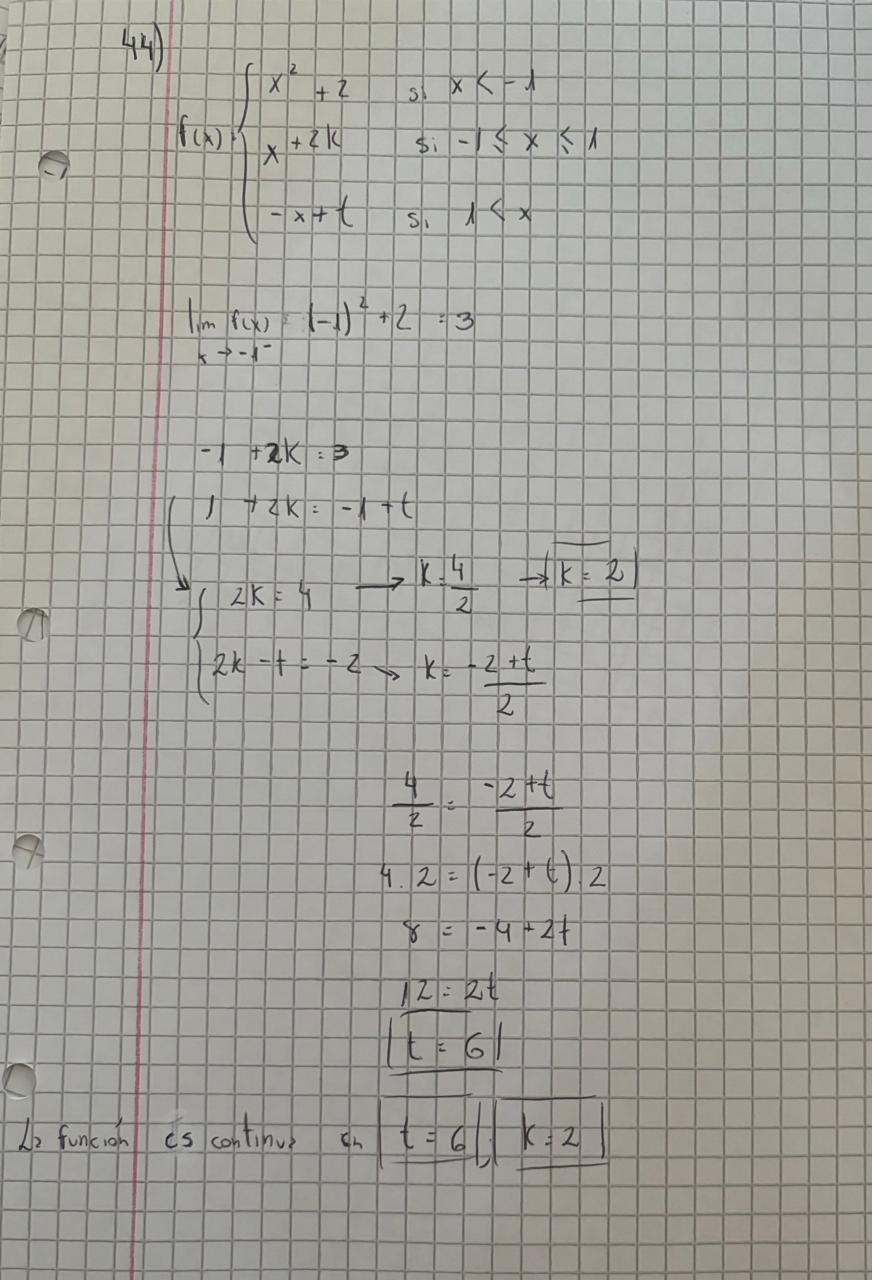 44)
x² + 2 si x < -1
f(x) = x + 2k si -1 ≤ x ≤ 1
-x + t si 1 < x
lim f(x) = (-1)² + 2 = 3
x → -1⁻
-1 + 2k = 3
1 + 2k = -1 + t
2k = 4 → k = 4/2 → k = 2
2k - t = -2 → k = -2+t/2
4/2 = -2+t/2
4 . 2 = (-2 + t) . 2
8 = -4 + 2t
12 = 2t
t = 6
La función es continua en t = 6, k = 2